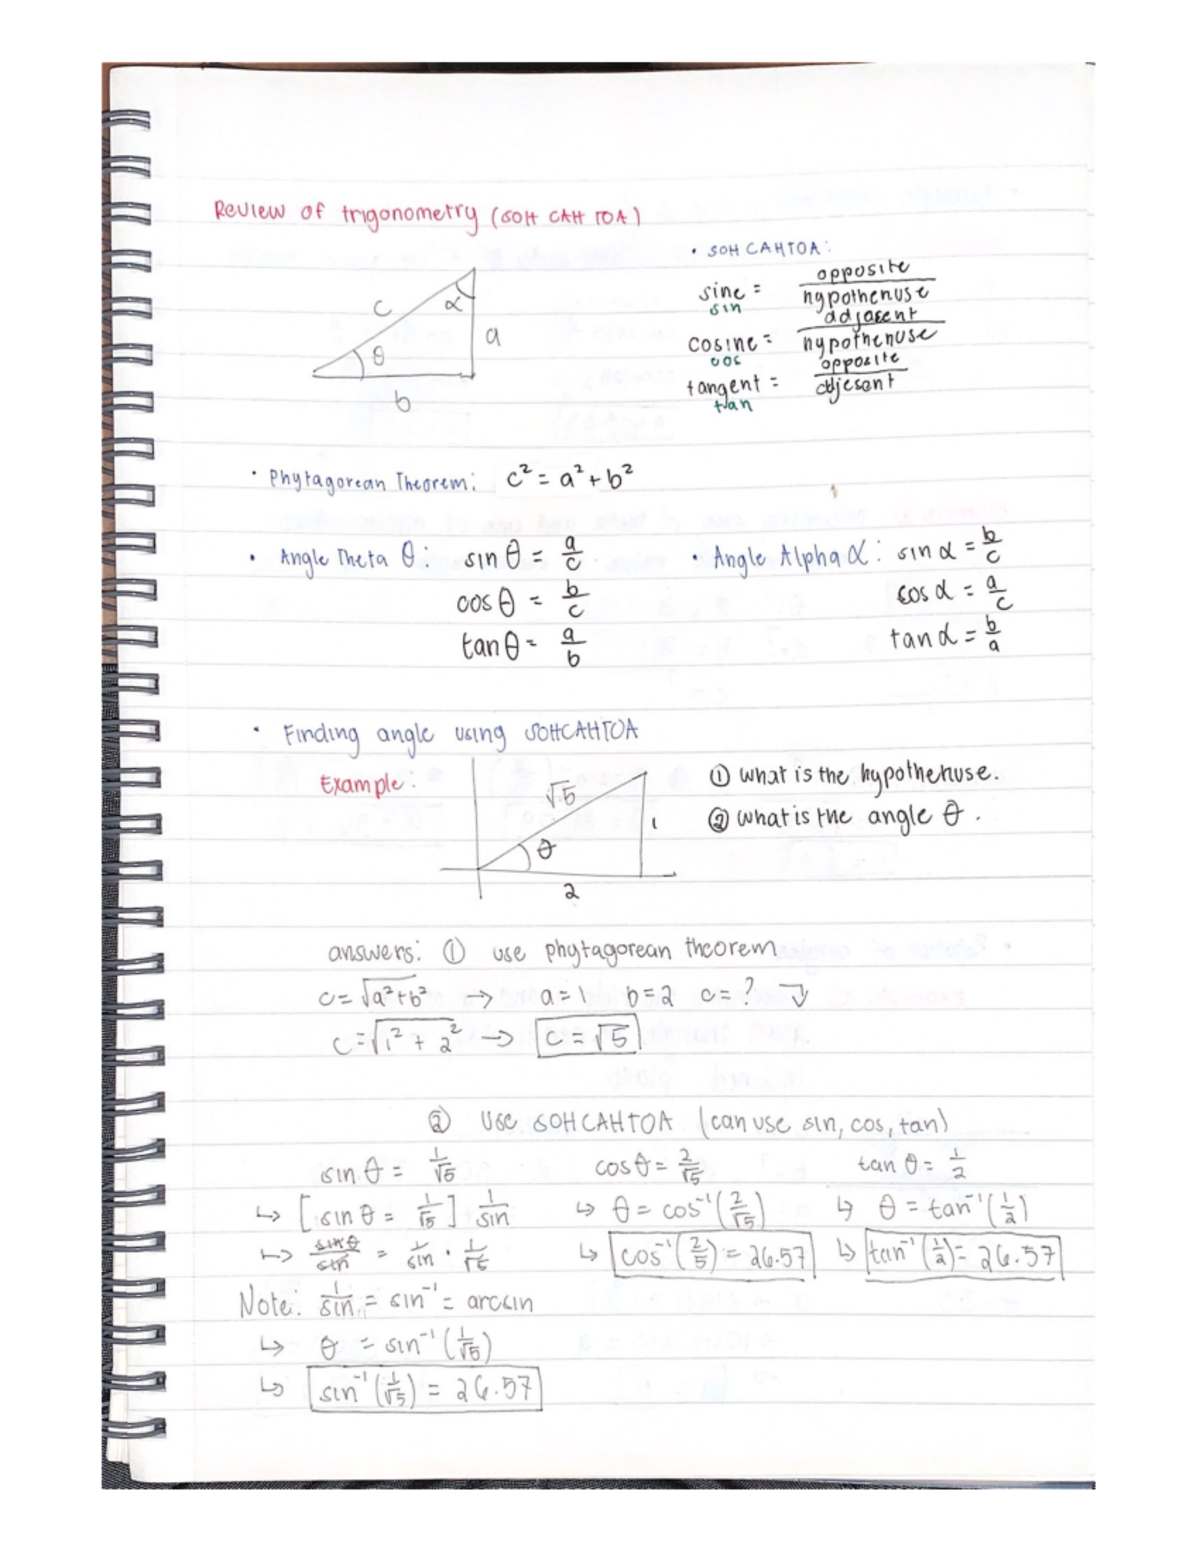 Review of trigonometry (SOH CAH TOA)
c
α
a
θ
b
• SOH CAHTOA:
sine = opposite / hypothenuse
sin
cosine = adjasent / hypothenuse
cos
tangent = opposite / adjesent
tan
• Phytagorean Theorem: c² = a² + b²
• Angle Theta θ: sin θ = a/c
cos θ = b/c
tan θ = a/b
• Angle Alpha α: sin α = b/c
cos α = a/c
tan α = b/a
• Finding angle using SOHCAHTOA
Example:
√5
θ
1
2
① what is the hypothenuse.
② what is the angle θ.
answers: ① use phytagorean theorem
c = √a²+b² → a = 1 b = 2 c = ?
c = √1² + 2² → c = √5
② Use SOHCAHTOA (can use sin, cos, tan)
sin θ = 1/√5 cos θ = 2/√5 tan θ = 1/2
↳ [sin θ = 1/√5] 1/sin ↳ θ = cos⁻¹(2/√5) ↳ θ = tan⁻¹(1/2)
↳ sin θ/sin = 1/sin · 1/√5 ↳ cos⁻¹(2/5) = 26.57 ↳ tan⁻¹(1/2) = 26.57
Note: 1/sin = sin⁻¹ = arcsin
↳ θ = sin⁻¹(1/√5)
↳ sin⁻¹(1/√5) = 26.57